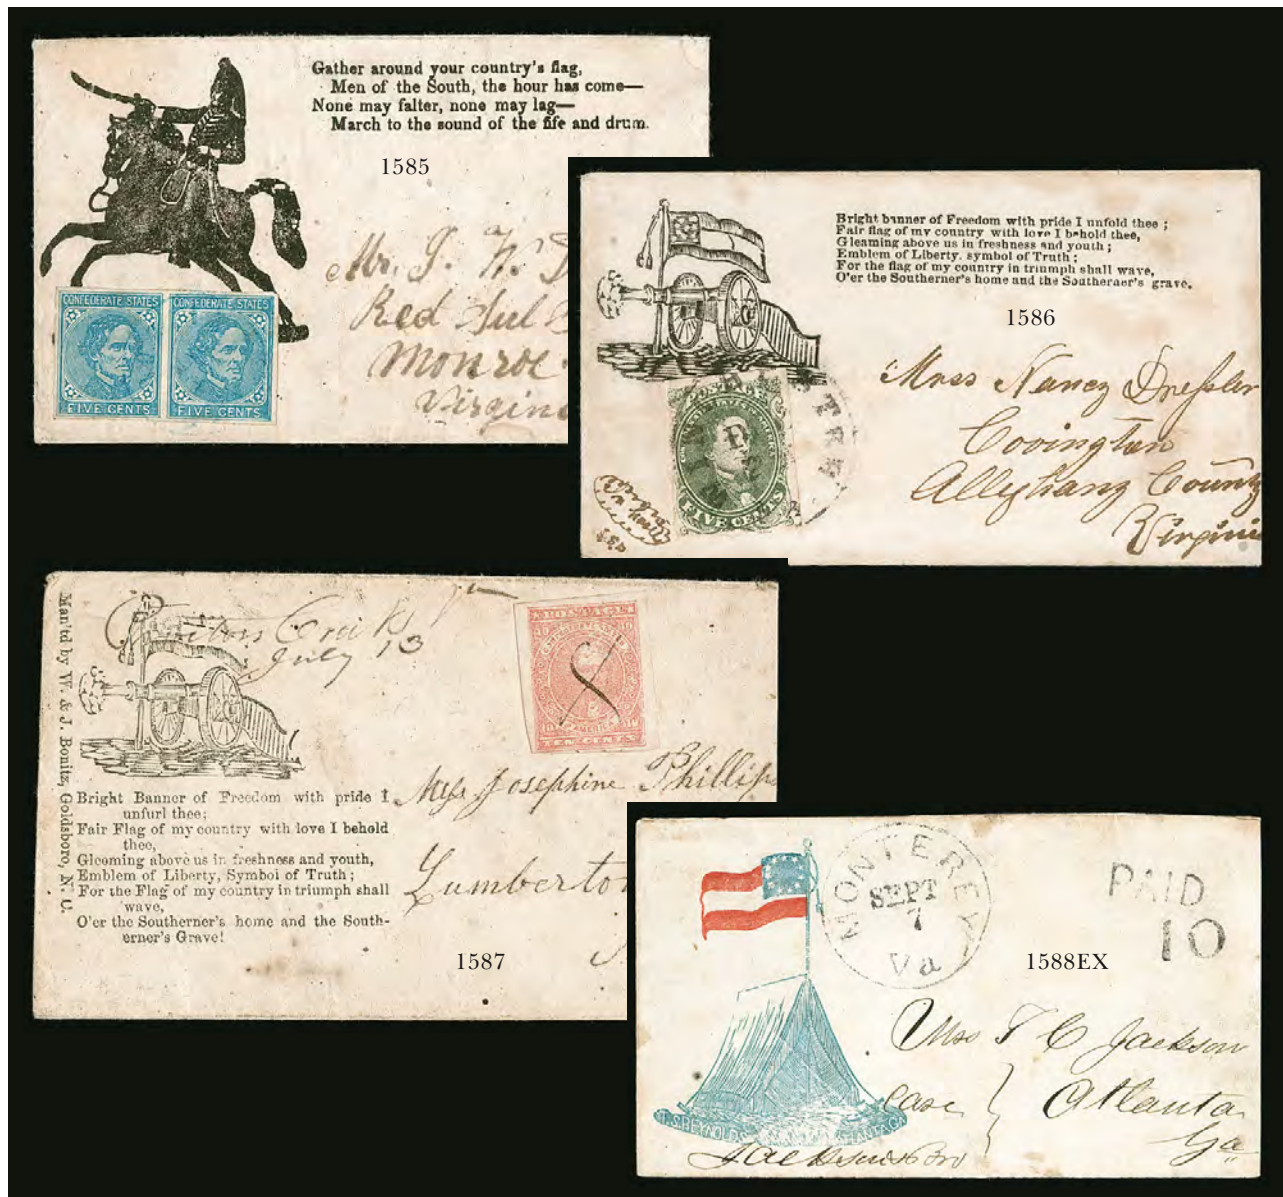 Gather around your country's flag,
Men of the South, the hour has come—
None may falter, none may lag—
March to the sound of the fife and drum.
1585
Mr. J. W.
Red Sul
Monroe
Virgin
CONFEDERATE STATES
CONFEDERATE STATES
FIVE CENTS
FIVE CENTS
Bright banner of Freedom with pride I unfold thee ;
Fair flag of my country with love I behold thee,
Gleaming above us in freshness and youth ;
Emblem of Liberty. symbol of Truth ;
For the flag of my country in triumph shall wave,
O'er the Southerner's home and the Southerner's grave.
1586
Miss Nancy Dressler
Covington
Alleghany County
Virginia
FIVE CENTS
Man'td by W. & J. Bonitz, Goldsboro, N. C.
Creek
July 13
POSTAGE
TEN CENTS
Bright Banner of Freedom with pride I
unfurl thee;
Fair Flag of my country with love I behold
thee,
Gleoming above us in freshness and youth,
Emblem of Liberty, Symbol of Truth ;
For the Flag of my country in triumph shall
wave,
O'er the Southerner's home and the South-
erner's Grave!
Miss Josephine Phillips
Lumberto
1587
MONTEREY
SEPT
7
Va
PAID
10
1588EX
Miss T C Jackson
Care
Atlanta
Ga
Jacksonboro